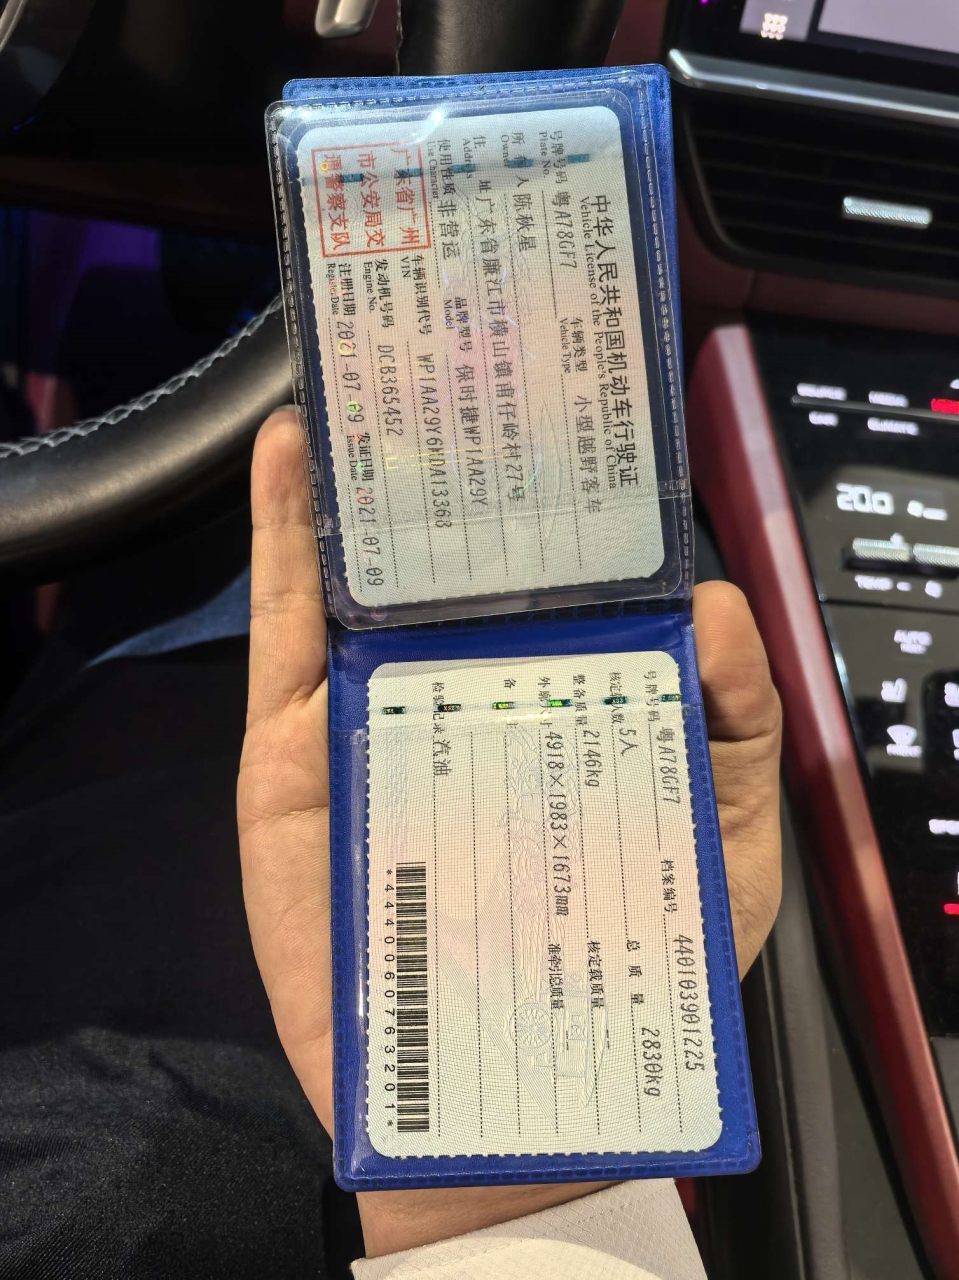 中华人民共和国机动车行驶证
Vehicle License of the People's Republic of China
号牌号码 粤A78GF7 车辆类型 小型越野客车
Plate No. Vehicle Type
所 人 陈秋星
Owner
住 址 广东省廉江市横山镇甫仔岭村27号
Address
使用性质 非营运 品牌型号 保时捷WP1AA29Y
Use Character Model
广东省广州
市公安局交
通警察支队
车辆识别代号 WP1AA29Y6MDA13368
VIN
发动机号码 DCB365452
Engine No.
注册日期 2021-07-09 发证日期 2021-07-09
Register Date Issue Date
号牌号码 粤A78GF7 档案编号 440103901225
核定 数 5人 总 质 量 2830kg
整备质量 2146kg 核定载质量 --
外廓 寸 4918×1983×1673mm 准牵引总质量 --
备
检验记录 汽油
*4440060763201*
20.0
TEMP
AUTO
CLIMATE